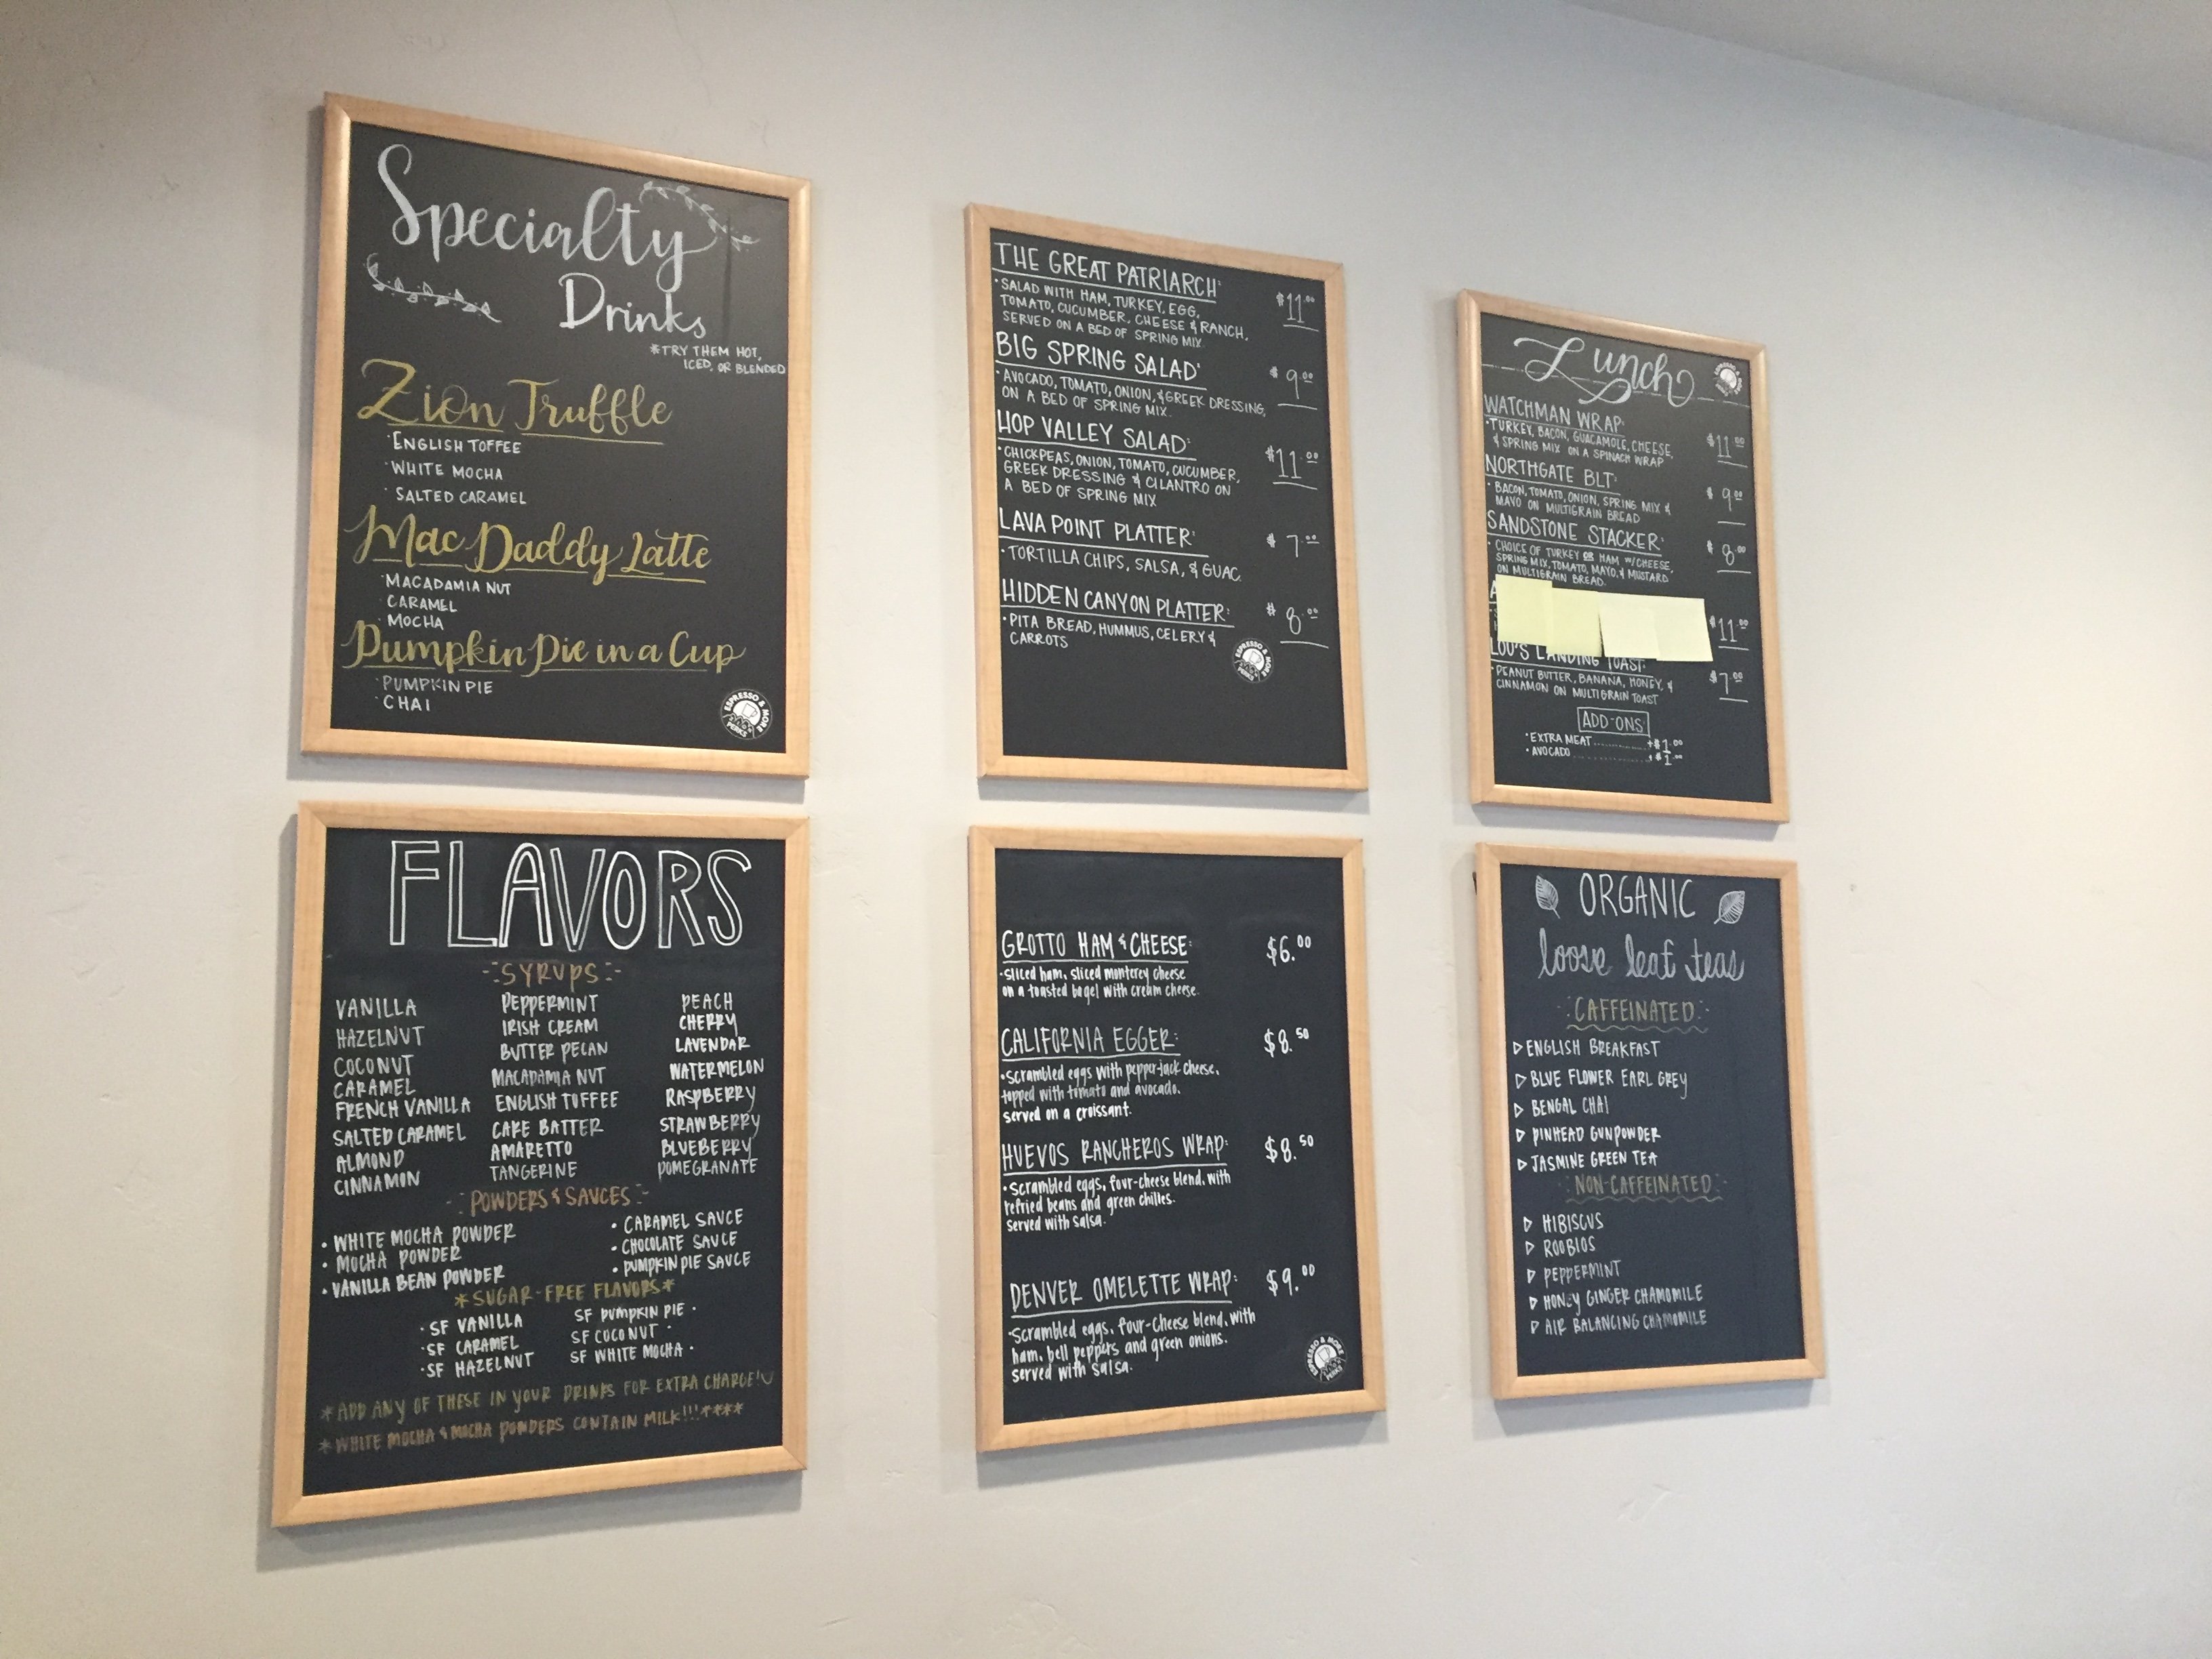 Specialty
Drinks
*TRY THEM HOT,
ICED, OR BLENDED
Zion Truffle
·ENGLISH TOFFEE
·WHITE MOCHA
·SALTED CARAMEL
Mac Daddy Latte
·MACADAMIA NUT
CARAMEL
·MOCHA
Pumpkin Pie in a Cup
·PUMPKIN PIE
·CHAI
ESPRESSO & MORE
PERKS
THE GREAT PATRIARCH: $11.00
·SALAD WITH HAM, TURKEY, EGG,
TOMATO, CUCUMBER, CHEESE & RANCH,
SERVED ON A BED OF SPRING MIX.
BIG SPRING SALAD: $9.00
·AVOCADO, TOMATO, ONION, & GREEK DRESSING,
ON A BED OF SPRING MIX.
HOP VALLEY SALAD: $11.00
·CHICKPEAS, ONION, TOMATO, CUCUMBER,
GREEK DRESSING & CILANTRO ON
A BED OF SPRING MIX
LAVA POINT PLATTER: $7.00
·TORTILLA CHIPS, SALSA, & GUAC.
HIDDEN CANYON PLATTER: $8.00
·PITA BREAD, HUMMUS, CELERY &
CARROTS
ESPRESSO & MORE
PERKS
Lunch
WATCHMAN WRAP: $11.00
·TURKEY, BACON, GUACAMOLE, CHEESE,
& SPRING MIX ON A SPINACH WRAP
NORTHGATE BLT: $9.00
·BACON, TOMATO, ONION, SPRING MIX &
MAYO ON MULTIGRAIN BREAD
SANDSTONE STACKER: $8.00
·CHOICE OF TURKEY OR HAM W/CHEESE,
SPRING MIX, TOMATO, MAYO, & MUSTARD
ON MULTIGRAIN BREAD.
$11.00
LOU'S LANDING TOAST: $7.00
·PEANUT BUTTER, BANANA, HONEY, &
CINNAMON ON MULTIGRAIN TOAST
ADD-ONS:
·EXTRA MEAT.............+$1.00
·AVOCADO.................+$1.00
FLAVORS
-:SYRUPS:-
VANILLA PEPPERMINT PEACH
HAZELNUT IRISH CREAM CHERRY
COCONUT BUTTER PECAN LAVENDAR
CARAMEL MACADAMIA NUT WATERMELON
FRENCH VANILLA ENGLISH TOFFEE RASPBERRY
SALTED CARAMEL CAKE BATTER STRAWBERRY
ALMOND AMARETTO BLUEBERRY
CINNAMON TANGERINE POMEGRANATE
-:POWDERS & SAUCES:-
• WHITE MOCHA POWDER • CARAMEL SAUCE
• MOCHA POWDER • CHOCOLATE SAUCE
• VANILLA BEAN POWDER • PUMPKIN PIE SAUCE
*SUGAR-FREE FLAVORS*
·SF VANILLA SF PUMPKIN PIE ·
·SF CARAMEL SF COCONUT ·
·SF HAZELNUT SF WHITE MOCHA ·
*ADD ANY OF THESE IN YOUR DRINKS FOR EXTRA CHARGE!
*WHITE MOCHA & MOCHA POWDERS CONTAIN MILK!!!****
GROTTO HAM & CHEESE: $6.00
·sliced ham, sliced monterey cheese
on a toasted bagel with cream cheese.
CALIFORNIA EGGER: $8.50
·Scrambled eggs with pepper-jack cheese,
topped with tomato and avocado.
served on a croissant.
HUEVOS RANCHEROS WRAP: $8.50
·Scrambled eggs, four-cheese blend, with
refried beans and green chilies.
served with salsa.
DENVER OMELETTE WRAP: $9.00
·Scrambled eggs, four-cheese blend, with
ham, bell peppers and green onions.
served with salsa.
ESPRESSO & MORE
PERKS
ORGANIC
loose leaf teas
·:CAFFEINATED:·
▷ENGLISH BREAKFAST
▷BLUE FLOWER EARL GREY
▷BENGAL CHAI
▷PINHEAD GUNPOWDER
▷JASMINE GREEN TEA
·:NON-CAFFEINATED:·
▷HIBISCUS
▷ROOBIOS
▷PEPPERMINT
▷HONEY GINGER CHAMOMILE
▷AIR BALANCING CHAMOMILE